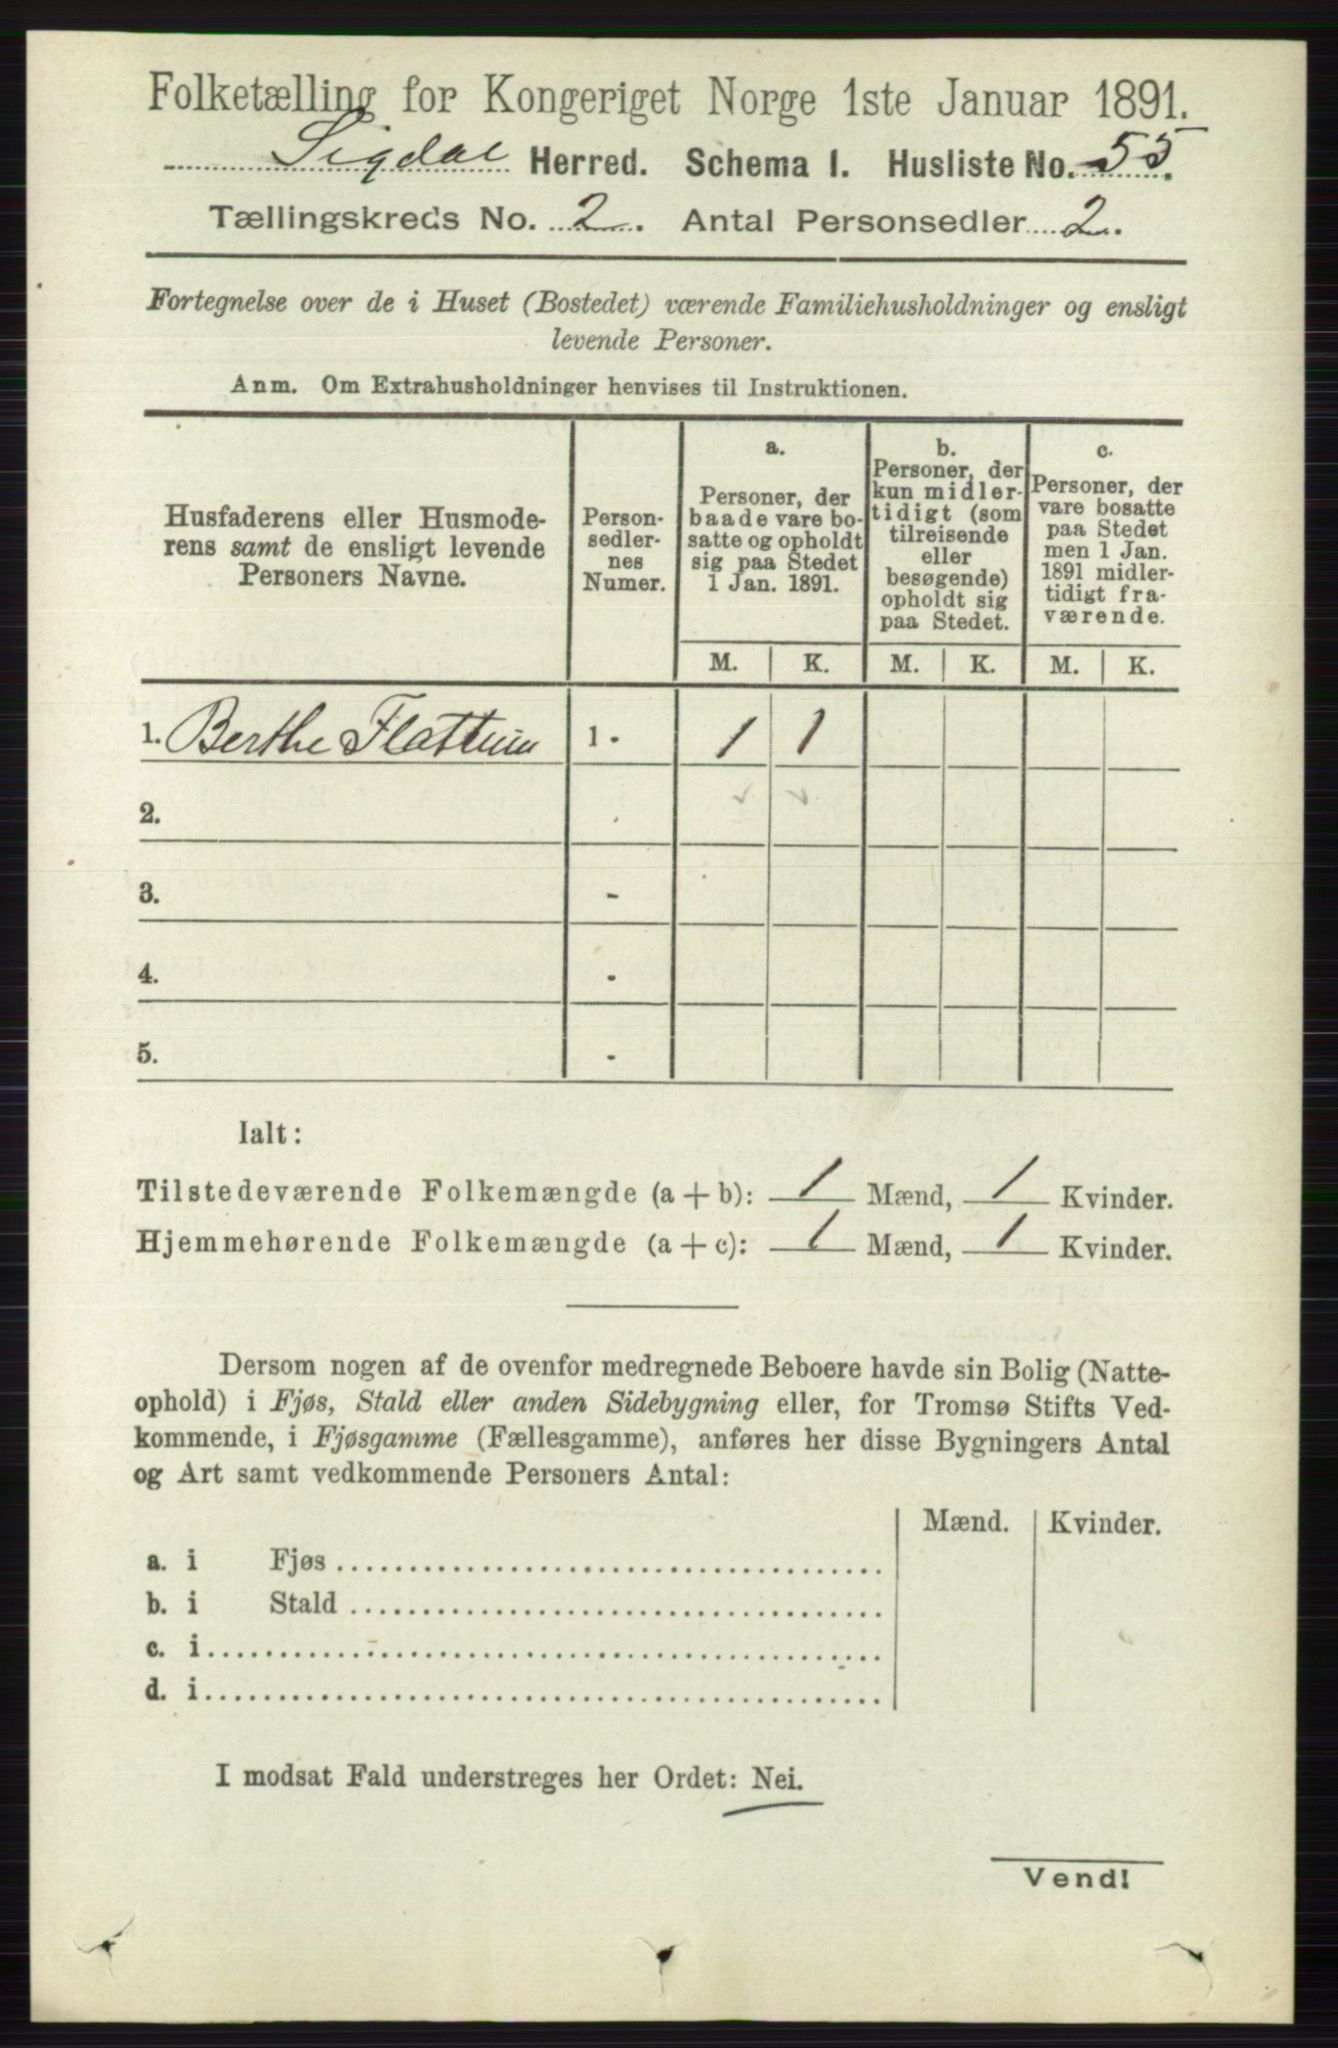 Folketælling for Kongeriget Norge 1ste Januar 1891.
Sigdal Herred. Schema 1. Husliste No. 55.
Tællingskreds No. 2. Antal Personsedler 2.
Fortegnelse over de i Huset (Bostedet) værende Familiehusholdninger og ensligt
levende Personer.
Anm. Om Extrahusholdninger henvises til Instruktionen.
Husfaderens eller Husmode-
rens samt de ensligt levende
Personers Navne.
Person-
sedler-
nes
Numer.
a.
Personer, der
baade vare bo-
satte og opholdt
sig paa Stedet
1 Jan. 1891.
b.
Personer, der
kun midler-
tidigt (som
tilreisende
eller
besøgende)
opholdt sig
paa Stedet.
c.
Personer, der
vare bosatte
paa Stedet
men 1 Jan.
1891 midler-
tidigt fra-
værende.
M. K. M. K. M. K.
1. Berthe Flattum 1 - 1 1
2.
3. -
4. -
5. -
Ialt:
Tilstedeværende Folkemængde (a + b): 1 Mænd, 1 Kvinder.
Hjemmehørende Folkemængde (a + c): 1 Mænd, 1 Kvinder.
Dersom nogen af de ovenfor medregnede Beboere havde sin Bolig (Natte-
ophold) i Fjøs, Stald eller anden Sidebygning eller, for Tromsø Stifts Ved-
kommende, i Fjøsgamme (Fællesgamme), anføres her disse Bygningers Antal
og Art samt vedkommende Personers Antal:
Mænd. Kvinder.
a. i Fjøs
b. i Stald
c. i
d. i
I modsat Fald understreges her Ordet: Nei.
Vend!